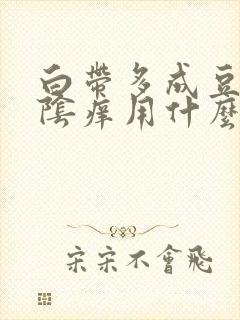 白帶多成豆
陰痒用什麼
宋宋不會飛